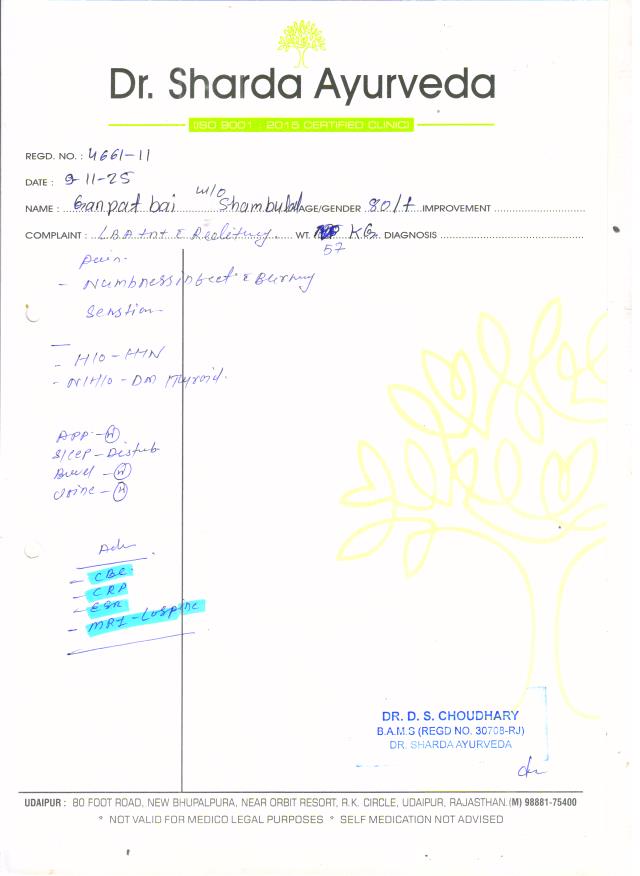 Dr. Sharda Ayurveda
(ISO 9001 : 2015 CERTIFIED CLINIC)
REGD. NO. : 4661-11
DATE : 9-11-25
NAME : Ganpat bai w/o Shambulal AGE/GENDER 80/f IMPROVEMENT
COMPLAINT : LBA WT. KG. DIAGNOSIS
57
pain.
- Numbness in feet & Burning
senstion-
- H/O - HTN
- N/H/O - DM Thyroid.
APP - N
Sleep - Disturb
Bowel - N
Urine - N
Adv
- CBC.
- CRP
- ESR
- MRI - L spine
DR. D. S. CHOUDHARY
B.A.M.S (REGD NO. 30708-RJ)
DR. SHARDA AYURVEDA
UDAIPUR : 80 FOOT ROAD, NEW BHUPALPURA, NEAR ORBIT RESORT, R.K. CIRCLE, UDAIPUR, RAJASTHAN.(M) 98881-75400
* NOT VALID FOR MEDICO LEGAL PURPOSES * SELF MEDICATION NOT ADVISED